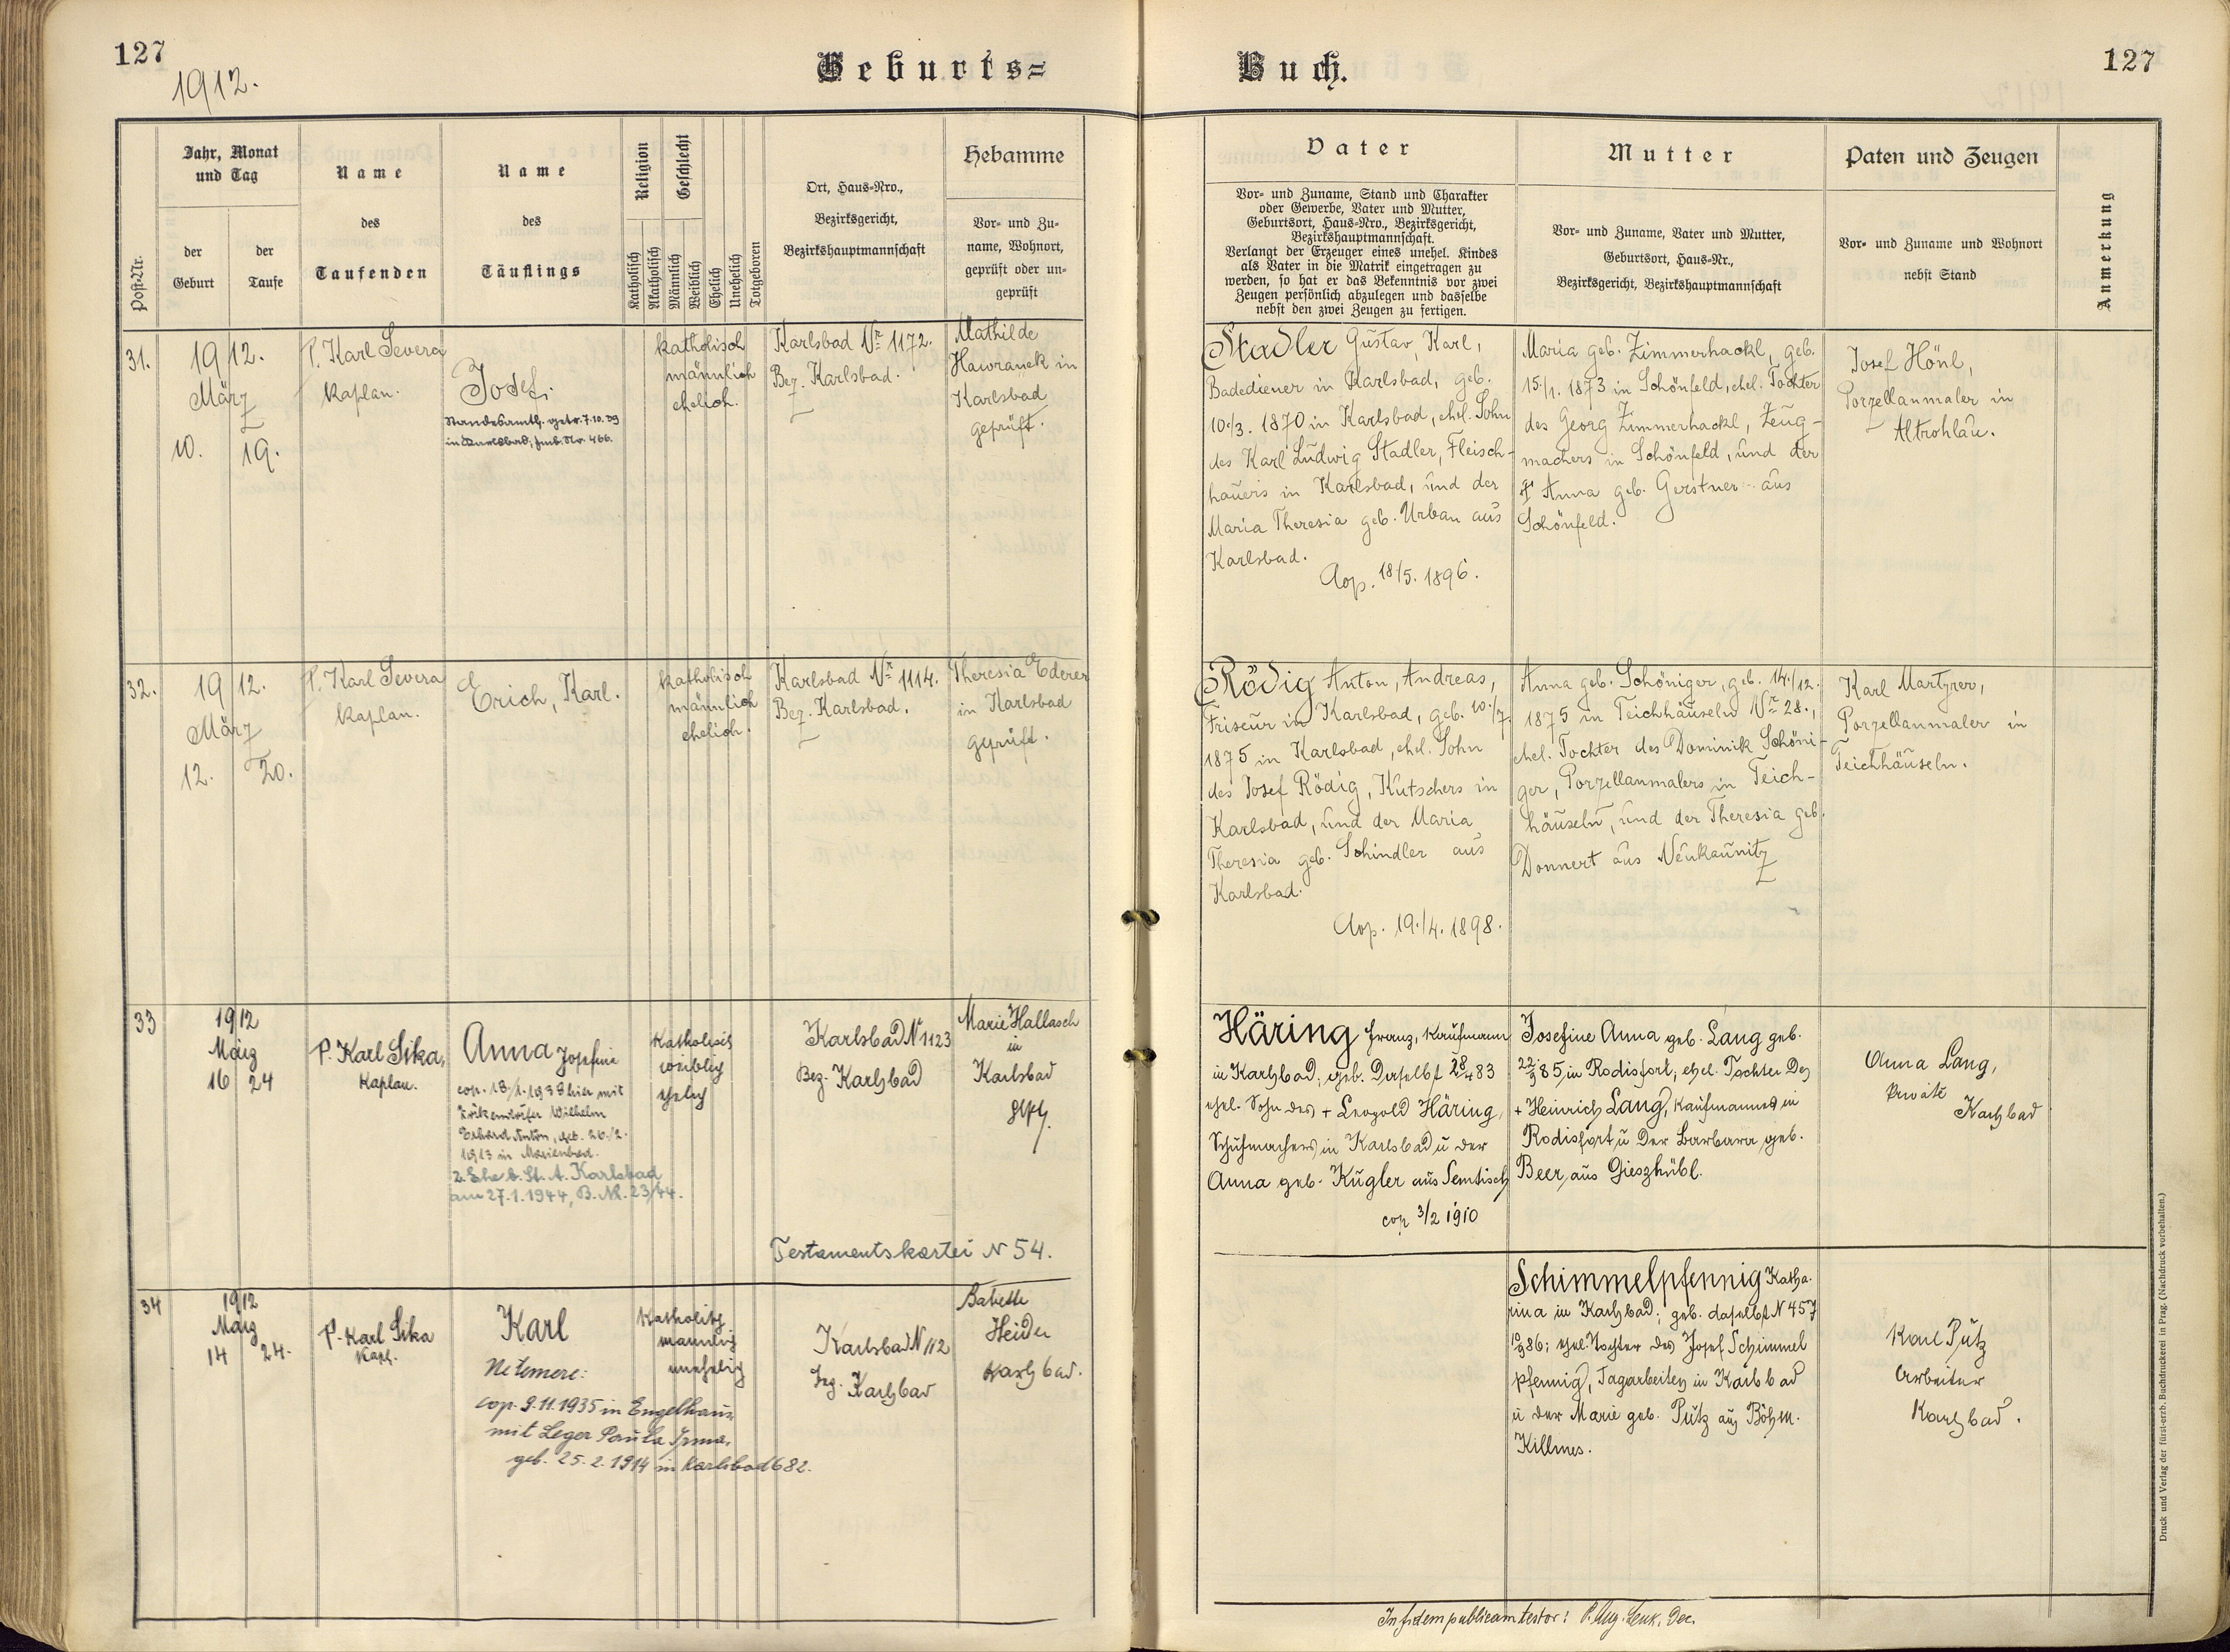 127
1912.
Geburts=
Buch.
127
Post-Nr.
Jahr, Monat
und Tag
der
Geburt
der
Taufe
Name
des
Taufenden
Name
des
Täuflings
Religion
Geschlecht
Katholisch
Akatholisch
Männlich
Weiblich
Ehelich
Unehelich
Totgeboren
Ort, Haus-Nro.,
Bezirksgericht,
Bezirkshauptmannschaft
Hebamme
Vor- und Zu-
name, Wohnort,
geprüft oder un-
geprüft
Vater
Vor- und Zuname, Stand und Charakter
oder Gewerbe, Vater und Mutter,
Geburtsort, Haus-Nro., Bezirksgericht,
Bezirkshauptmannschaft.
Verlangt der Erzeuger eines unehel. Kindes
als Vater in die Matrik eingetragen zu
werden, so hat er das Bekenntnis vor zwei
Zeugen persönlich abzulegen und dasselbe
nebst den zwei Zeugen zu fertigen.
Mutter
Vor- und Zuname, Vater und Mutter,
Geburtsort, Haus-Nr.,
Bezirksgericht, Bezirkshauptmannschaft
Paten und Zeugen
Vor- und Zuname und Wohnort
nebst Stand
Anmerkung
31.
1912.
März
10. 19.
P. Karl Severa
Kaplan.
Josef.
Standesamtl. getr. 7.10.39
in Karlsbad, Fmb. Nr. 466.
katholisch
männlich
ehelich.
Karlsbad Nr. 1172.
Bez. Karlsbad.
Mathilde
Hawranek in
Karlsbad
geprüft.
Stadler Gustav, Karl,
Badediener in Karlsbad, geb.
10./3. 1870 in Karlsbad, ehel. Sohn
des Karl Ludwig Stadler, Fleisch-
hauers in Karlsbad, und der
Maria Theresia geb. Urban aus
Karlsbad.
Cop. 18/5. 1896.
Maria geb. Zimmerhackl, geb.
15./1. 1873 in Schönfeld, ehel. Tochter
des Georg Zimmerhackl, Zeug-
machers in Schönfeld, und der
† Anna geb. Gerstner aus
Schönfeld.
Josef Hönl,
Porzellanmaler in
Altrohlau.
32.
1912.
März
12. 20.
P. Karl Severa
Kaplan.
Erich, Karl.
katholisch
männlich
ehelich.
Karlsbad Nr. 1114.
Bez. Karlsbad.
Theresia Ederer
in Karlsbad
geprüft.
Rödig Anton, Andreas,
Friseur in Karlsbad, geb. 10./7.
1875 in Karlsbad, ehel. Sohn
des Josef Rödig, Kutschers in
Karlsbad, und der Maria
Theresia geb. Schindler aus
Karlsbad.
Cop. 19./4. 1898.
Anna geb. Schöniger, geb. 14./12.
1875 in Teichhäuseln Nr. 28.,
ehel. Tochter des Dominik Schöni-
ger, Porzellanmalers in Teich-
häuseln, und der Theresia geb.
Donnert aus Neukaunitz
Karl Martzrer,
Porzellanmaler in
Teichhäuseln.
33
1912
März
16 24
P. Karl Sika,
Kaplan.
Anna Josefine
cop. 18/1. 1938 hier mit
Wilhelm
Erhard Anton, geb. 26./2.
1913 in Marienbad.
2. Ehe b. St. A. Karlsbad
am 27.1.1944, B. Nr. 23/44.
katholisch
weiblich
ehelich
Karlsbad N 1123
Bez. Karlsbad
Marie Hallasch
in
Karlsbad
gepr.
Testamentskartei N 54.
Häring Franz, Kaufmann
in Karlsbad; geb. daselbst 28/4 83
ehel. Sohn des + Leopold Häring,
Schuhmachers in Karlsbad u der
Anna geb. Kugler aus Semtisch
cop 3/2 1910
Josefine Anna geb. Lang geb.
22/9 85, in Rodisfort, ehel. Tochter des
+ Heinrich Lang, Kaufmannes in
Rodisfort u der Barbara geb.
Beer, aus Gieszhübl.
Anna Lang,
Private
Karlsbad
34
1912
März
14 24.
P. Karl Sika
Kapl.
Karl
Ne temere:
cop. 9.11.1935 in Engelhaus
mit Leger Paula Irma,
geb. 25.2.1914 in Karlsbad 682.
katholisch
männlich
unehelich
Karlsbad N 112
Bez. Karlsbad
Babette
Heider
Karlsbad.
Schimmelpfennig Katha-
rina in Karlsbad; geb. daselbst N 457
10/9 86; ehel. Tochter des Josef Schimmel
pfennig, Tagarbeiters in Karlsbad
u der Marie geb. Pütz aus Böhm.
Killmes.
Karl Pütz
Arbeiter
Karlsbad.
In fidem publicam testor: P. Aug. Lenk. Dec.
Druck und Verlag der fürst-erzb. Buchdruckerei in Prag. (Nachdruck vorbehalten.)